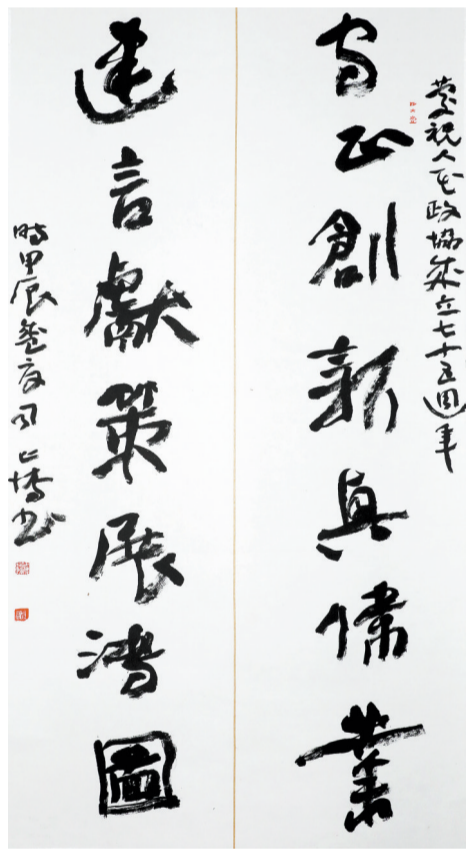 慶祝人民政協成立七十五週年
守正創新興偉業
建言獻策展鴻圖
時甲辰夏書